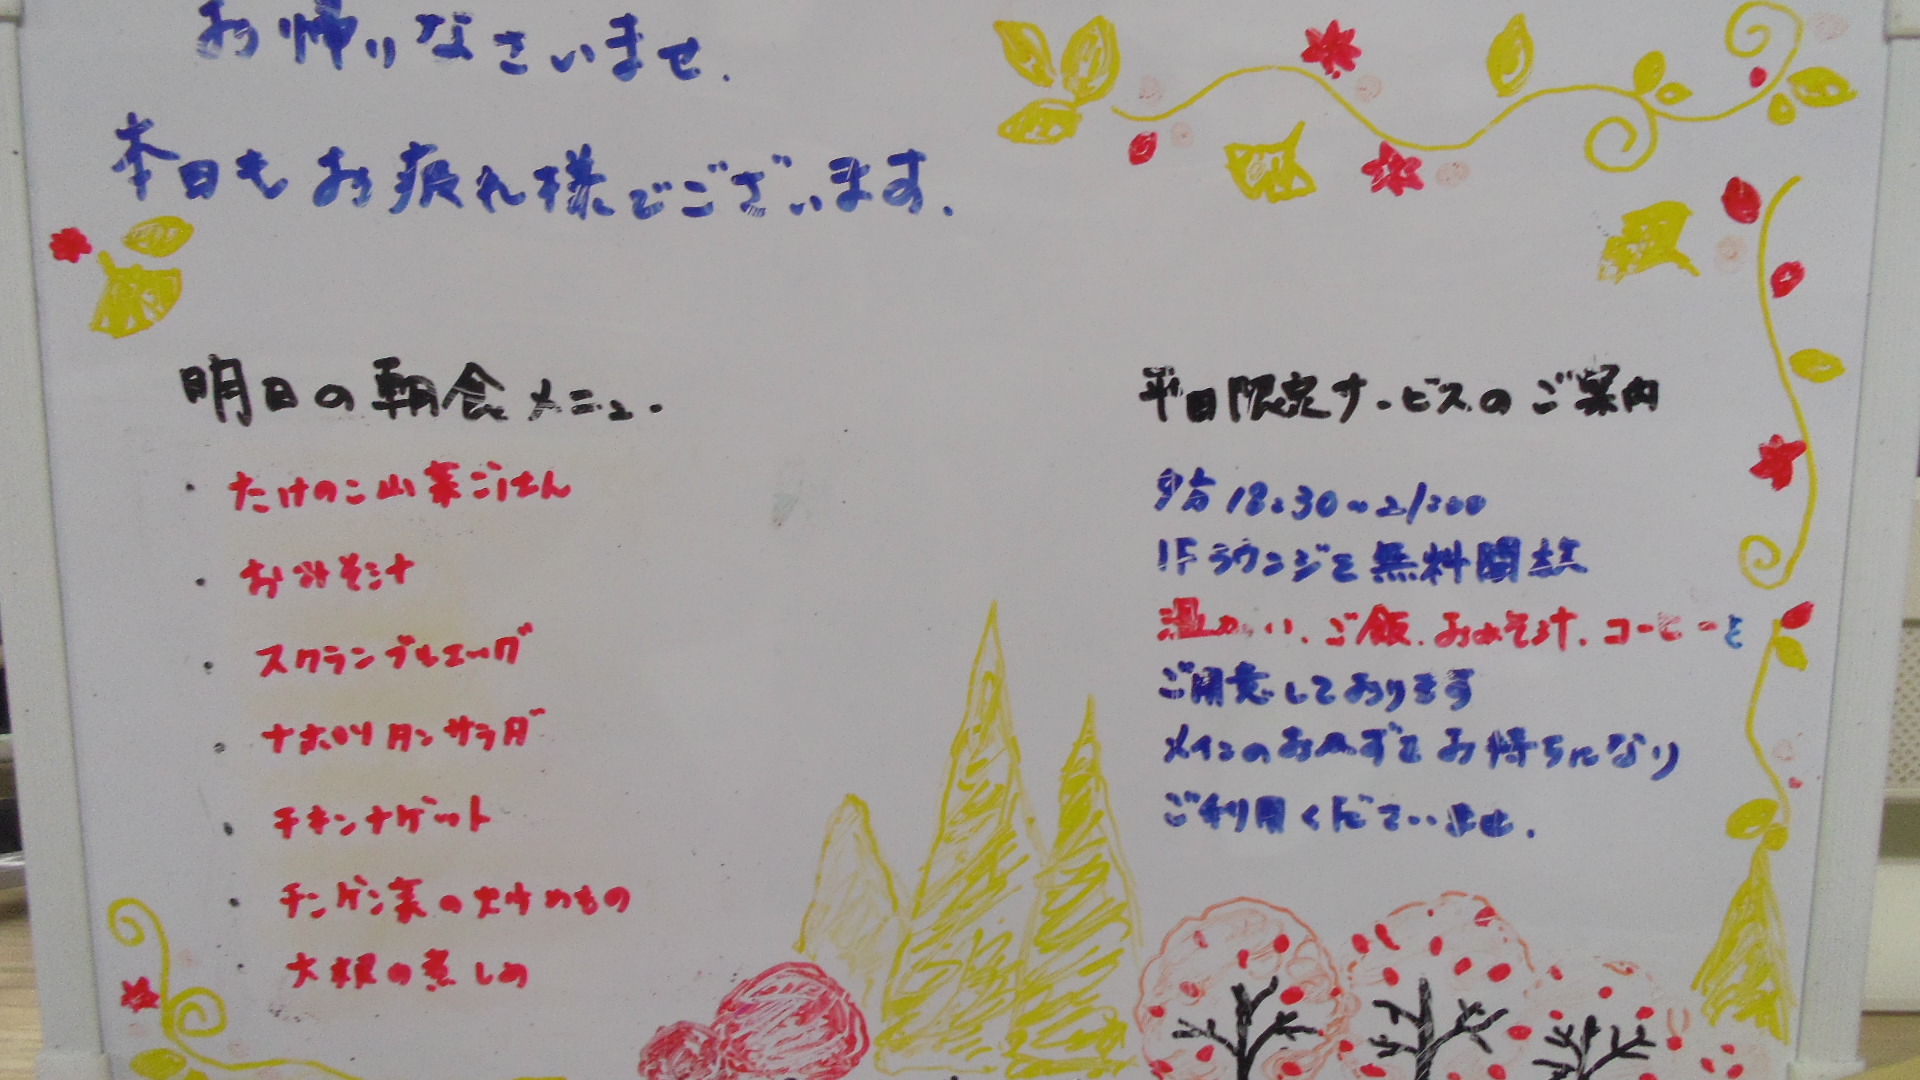 お帰りなさいませ.
本日もお疲れ様でございます.
明日の朝食メニュー
・たけのこ山菜ごはん
・おみそ汁
・スクランブルエッグ
・ナポリタンサラダ
・チキンナゲット
・チンゲン菜の炒めもの
・大根の煮しめ
平日限定サービスのご案内
夕方 18:30~21:00
1Fラウンジを無料開放
温かい、ご飯、おみそ汁、コーヒーを
ご用意しております
メインのおかずをお持ちになり
ご利用くださいませ.